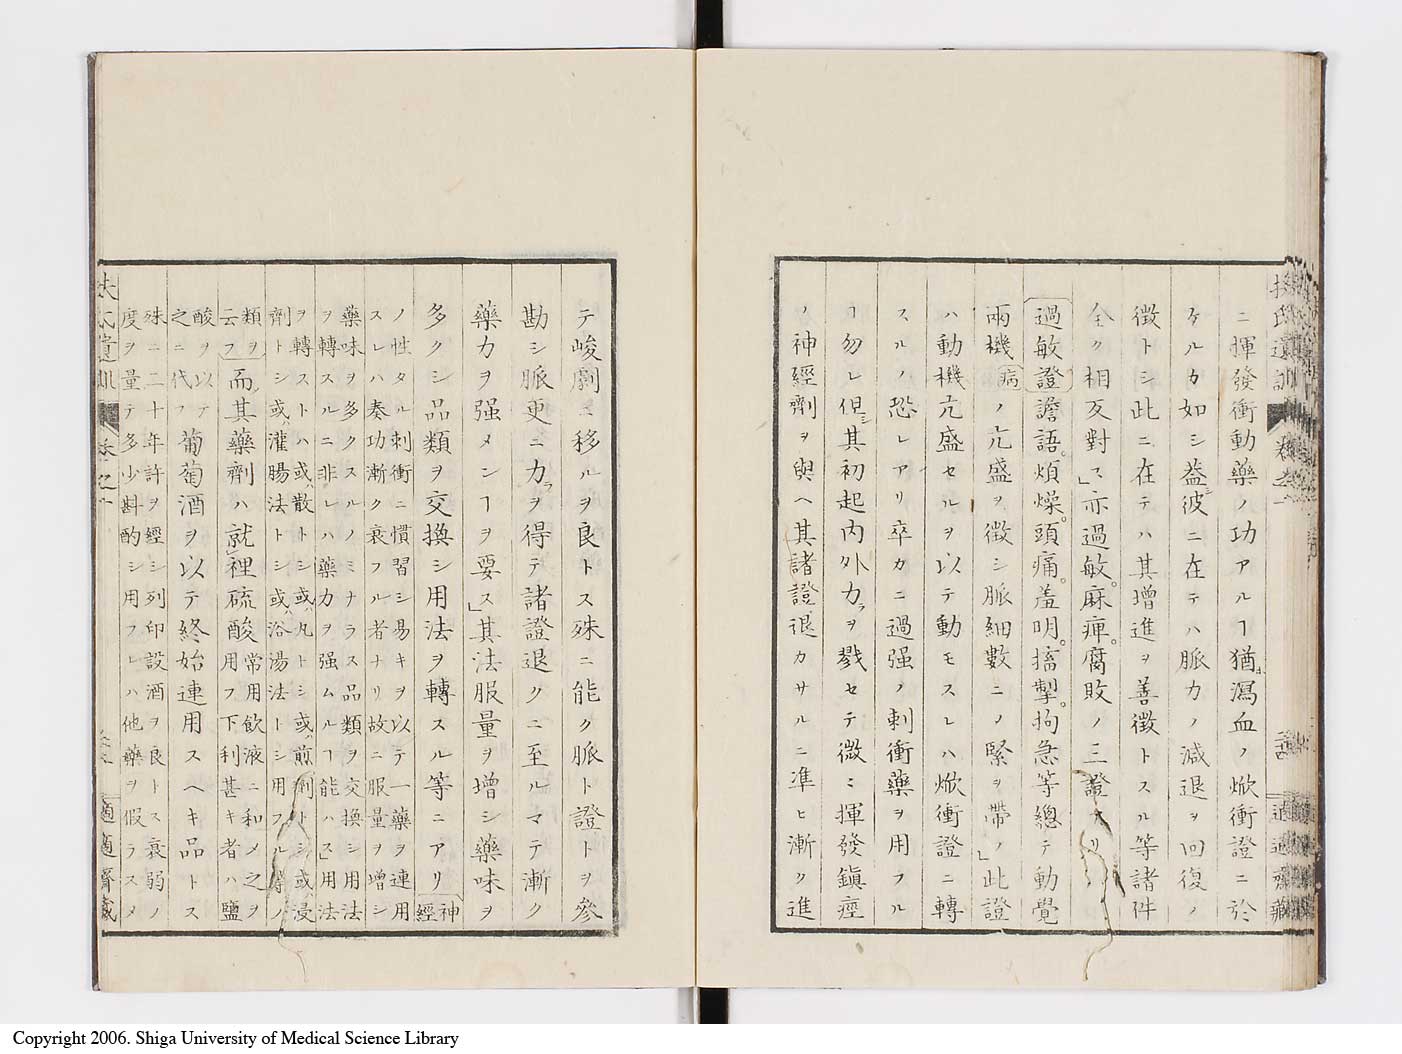 扶氏遺訓 卷之一
二十四 適適齋藏
ニ揮發衝動藥ノ功アルヿ猶瀉血ノ焮衝證ニ於
ケルカ如シ葢彼ニ在テハ脈力ノ減退ヲ回復ノ
徴トシ此ニ在テハ其增進ヲ善徴トスル等諸件
全ク相反對ス」亦過敏。麻痺。腐敗ノ三證アリ
過敏證譫語。煩燥。頭痛。羞明。搐掣。拘急等總テ動覺
兩機病ノ亢盛ヲ徴シ脈細數ニノ緊ヲ帶ノ」此證
ハ動機亢盛セルヲ以テ動モスレハ焮衝證ニ轉
スルノ恐レアリ卒カニ過强ノ刺衝藥ヲ用フル
ヿ勿レ但其初起内外力ヲ戮セテ微ニ揮發鎭痙
ノ神經劑ヲ與ヘ其諸證退カサルニ準ヒ漸ク進
テ峻劇ニ移ルヲ良トス殊ニ能ク脈ト證トヲ參
勘シ脈更ニ力ヲ得テ諸證退クニ至ルマテ漸ク
藥力ヲ强メンヿヲ要ス」其法服量ヲ增シ藥味ヲ
多クシ品類ヲ交換シ用法ヲ轉スル等ニアリ神經
ノ性タル刺衝ニ慣習シ易キヲ以テ一藥ヲ連用
スレハ奏功漸ク衰フル者ナリ故ニ服量ヲ增シ
藥味ヲ多クスルノミナラス品類ヲ交換シ用法
ヲ轉スルニ非レハ藥力ヲ强ムルヿ能ハス」用法
ヲ轉ストハ或散トシ或丸トシ或煎劑トシ或浸
劑トシ或灌腸法トシ或浴湯法トシ用フル等ノ
類ヲ云フ而其藥劑ハ就裡硫酸常用飲液ニ和メ之ヲ
用フ下利甚キ者ハ鹽
酸ヲ以テ之ニ代フ葡萄酒ヲ以テ終始連用スヘキ品トス
殊ニ二十年許ヲ經シ列印設酒ヲ良トス衰弱ノ
度ヲ量テ多少斟酌シ用フレハ他藥ヲ假ラスメ
扶氏遺訓 卷之一
適適齋藏
Copyright 2006. Shiga University of Medical Science Library